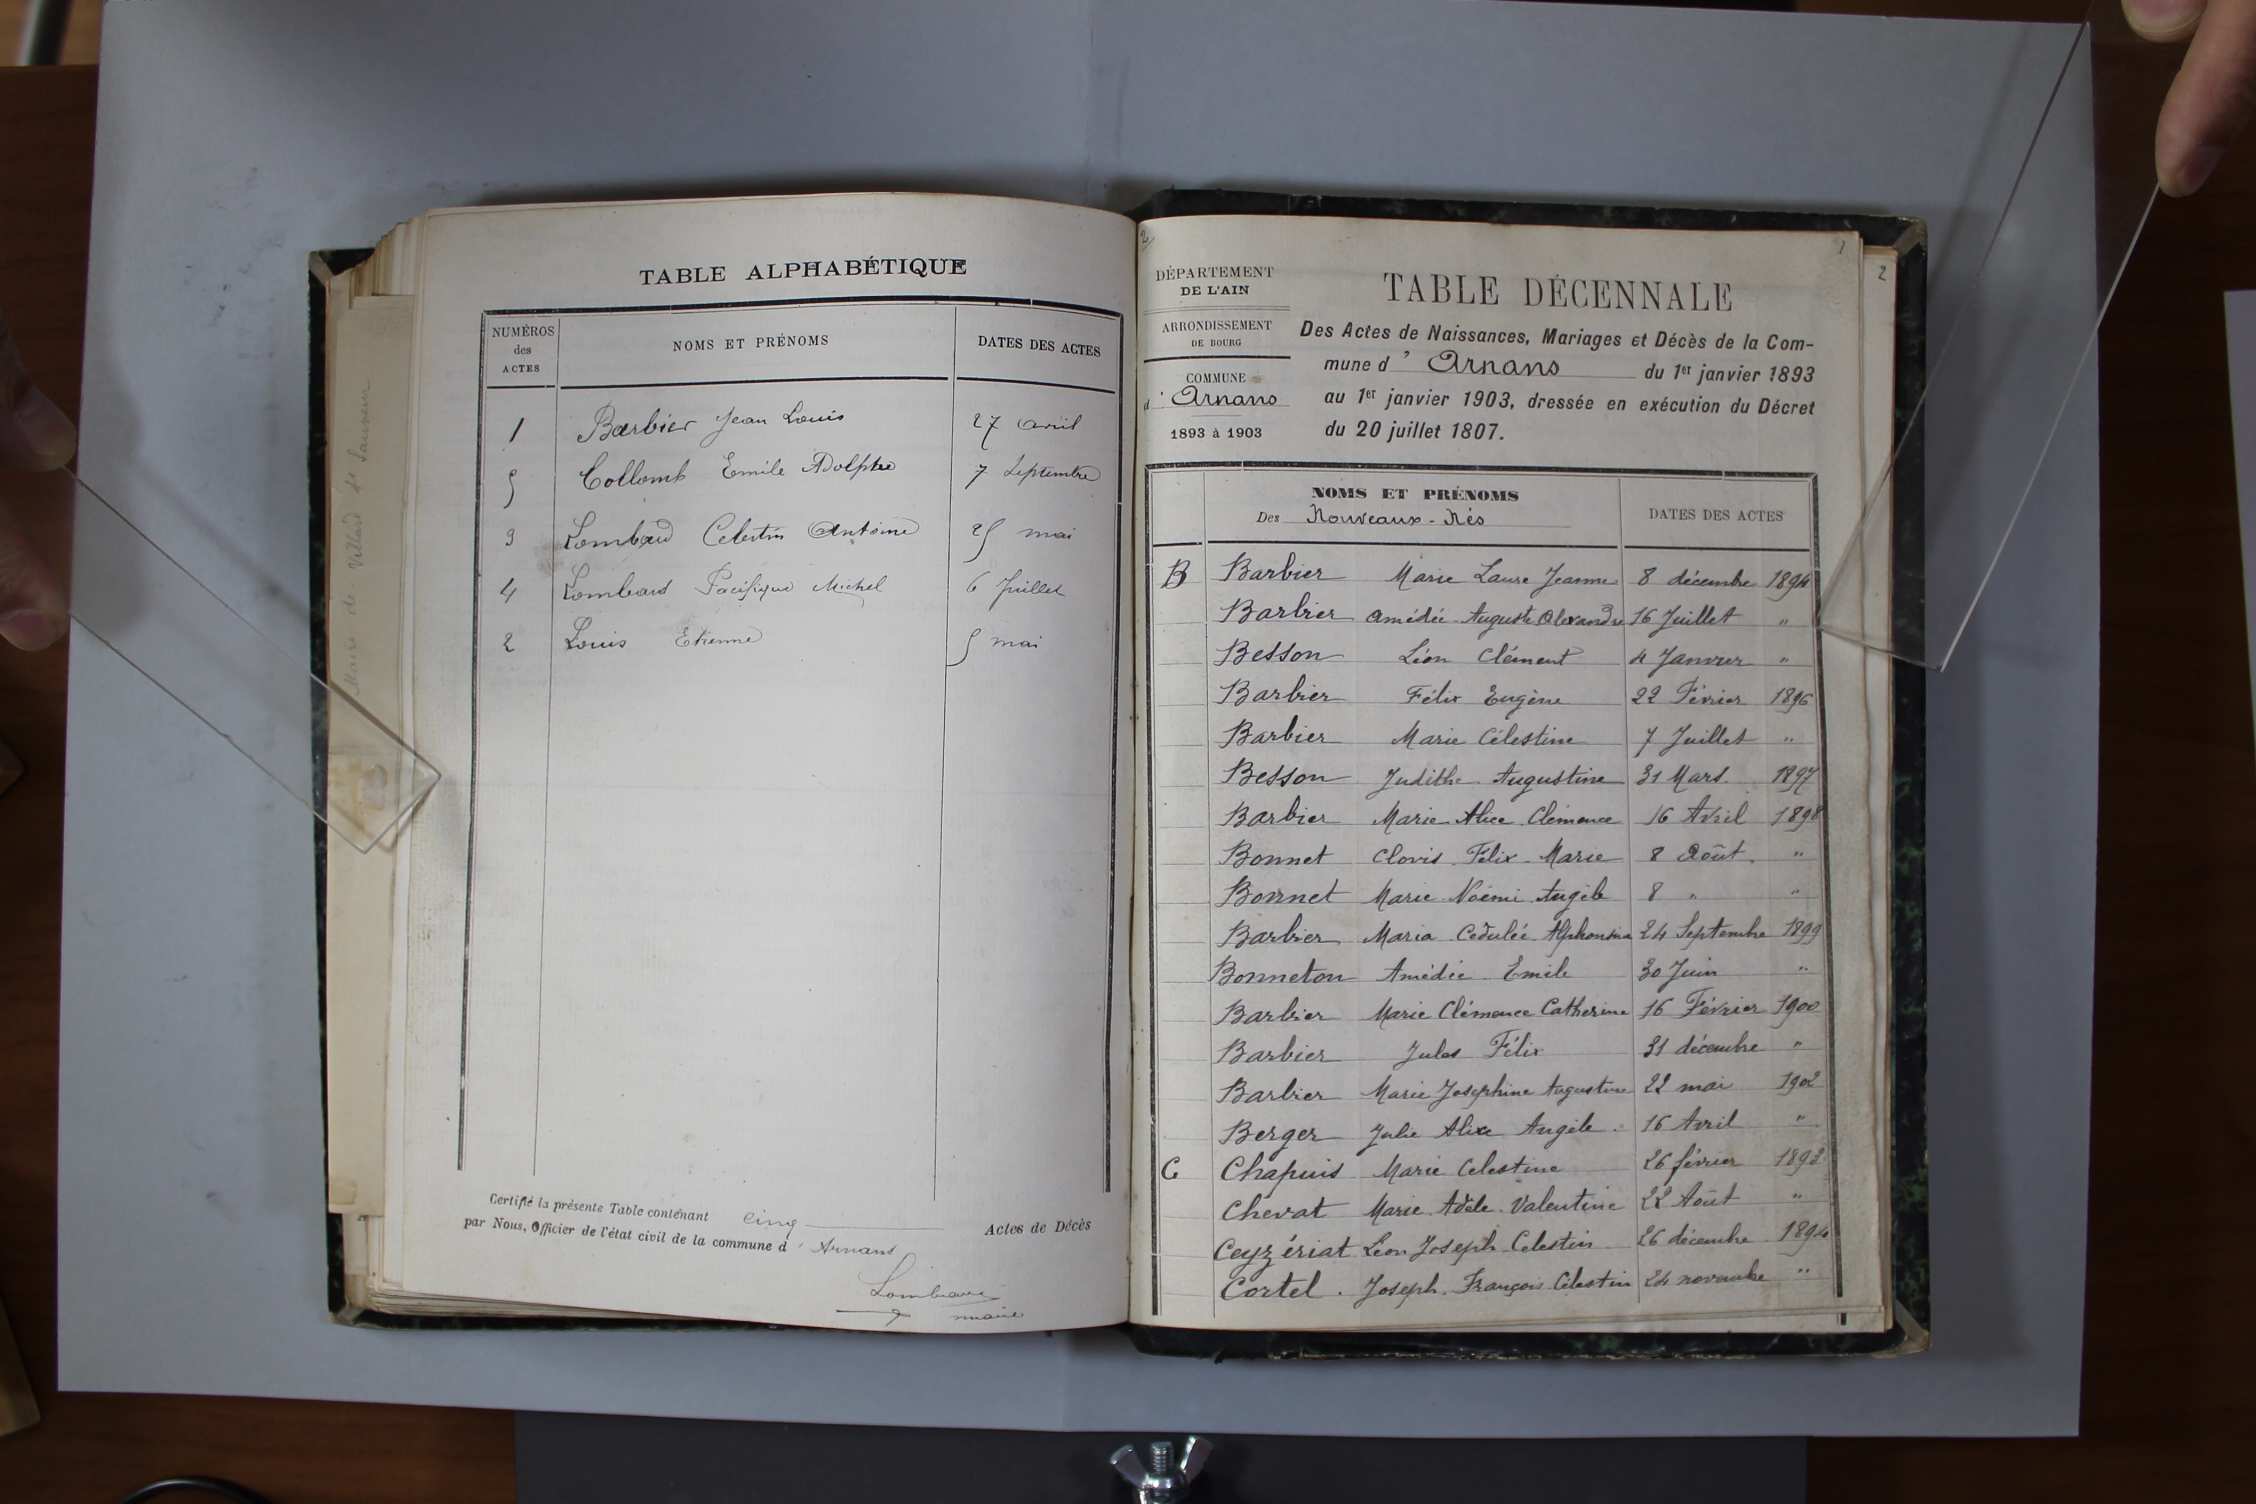 TABLE ALPHABÉTIQUE
NUMÉROS des ACTES NOMS ET PRÉNOMS DATES DES ACTES
1 Barbier Jean Louis 27 avril
5 Collomb Emile Adolphe 7 Septembre
3 Lombard Celestin Antoine 25 mai
4 Lombard Pacifique Michel 6 Juillet
2 Louis Etienne 5 mai
Certifié la présente Table contenant cinq Actes de Décès
par Nous, Officier de l'état civil de la commune d' Arnans
Lombard
maire
Maire de Villard St Sauveur
2
DÉPARTEMENT
DE L'AIN
ARRONDISSEMENT
DE BOURG
COMMUNE
d' Arnans
1893 à 1903
TABLE DÉCENNALE
Des Actes de Naissances, Mariages et Décès de la Com-
mune d' Arnans du 1er janvier 1893
au 1er janvier 1903, dressée en exécution du Décret
du 20 juillet 1807.
NOMS ET PRÉNOMS
Des Nouveaux-Nés DATES DES ACTES
B Barbier Marie Laure Jeanne 8 décembre 1894
Barbier Amédée Auguste Alexandre 16 Juillet "
Besson Léon Clément 4 Janvier "
Barbier Félix Eugène 22 Février 1896
Barbier Marie Célestine 7 Juillet "
Besson Judith Augustine 31 Mars 1897
Barbier Marie Alice Clémence 16 Avril 1898
Bonnet Clovis Félix Marie 8 Août "
Bonnet Marie Noémi Angèle 8 " "
Barbier Maria Alphonsine 24 Septembre 1899
Bonneton Amédée Emile 30 Juin "
Barbier Marie Clémence Catherine 16 Février 1900
Barbier Jules Félix 31 décembre "
Barbier Marie Joséphine Augustine 22 mai 1902
Berger Julie Alice Angèle 16 Avril "
C Chapuis Marie Celestine 26 février 1893
Chevat Marie Adèle Valentine 22 Août "
Ceyzériat Léon Joseph Celestin 26 décembre 1894
Cortel Joseph François Célestin 24 novembre "
2